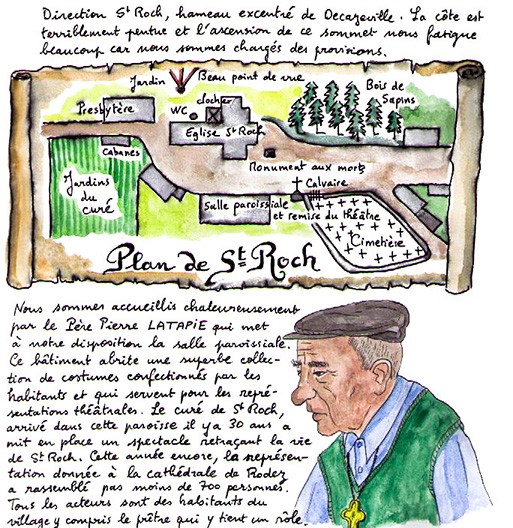 Direction St Roch, hameau excentré de Decazeville. La côte est
terriblement pentue et l'ascension de ce sommet nous fatigue
beaucoup car nous sommes chargés des provisions.
Jardin
Beau point de vue
Bois de
Sapins
Presbytère
WC
clocher
Eglise St Roch
Cabanes
Monument aux morts
Calvaire
Jardins
du
curé
Salle paroissiale
et remise du théâtre
Cimetière
Plan de St Roch
Nous sommes accueillis chaleureusement
par le Père Pierre LATAPIE qui met
à notre disposition la salle paroissiale.
Ce bâtiment abrite une superbe collec-
tion de costumes confectionnés par les
habitants et qui servent pour les repré-
sentations théâtrales. Le curé de St Roch,
arrivé dans cette paroisse il y a 30 ans a
mit en place un spectacle retraçant la vie
de St Roch. Cette année encore, la représen-
tation donnée à la cathédrale de Rodez
a rassemblé pas moins de 700 personnes.
Tous les acteurs sont des habitants du
village y compris le prêtre qui y tient un rôle.